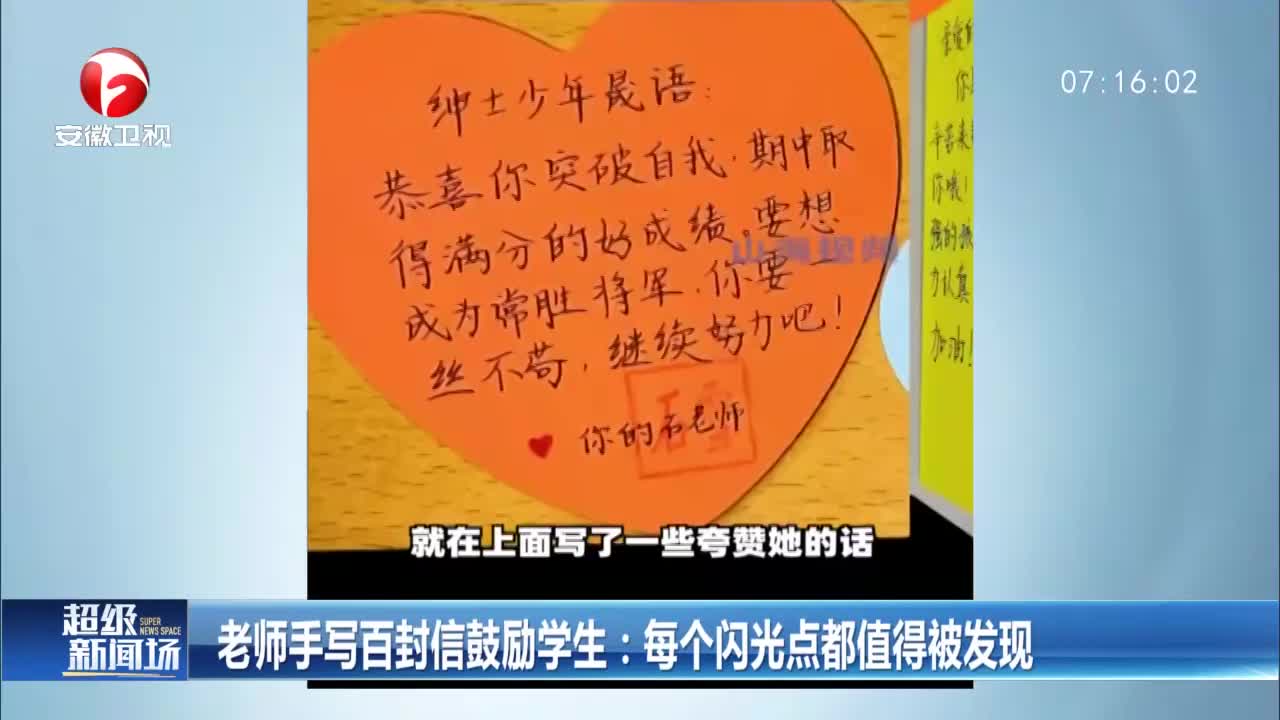 安徽卫视
07:16:02
绅士少年晟语：
恭喜你突破自我，期中取
得满分的好成绩。要想
成为常胜将军，你要一
丝不苟，继续努力吧！
你的石老师
你
辛苦来
你哦！
强的
力认真
加油！
就在上面写了一些夸赞她的话
超级
新闻场
SUPER
NEWS SPACE
老师手写百封信鼓励学生：每个闪光点都值得被发现